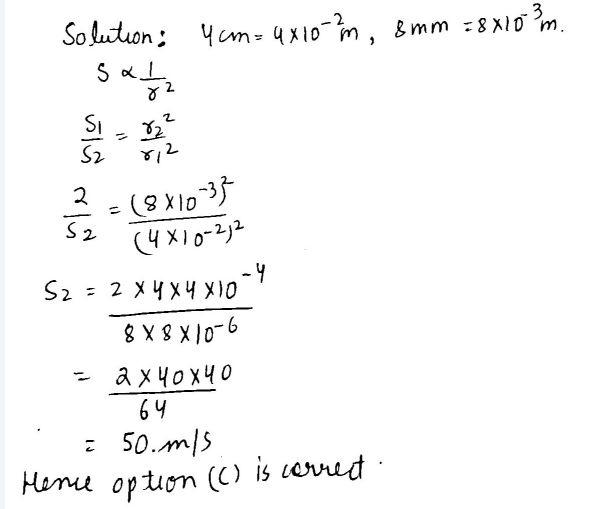 Solution: 4 cm = 4 X10⁻²m, 8 mm = 8 X10⁻³m.
S ∝ 1/r²
S1/S2 = r2²/r1²
2/S2 = (8 X10⁻³)²/(4 X10⁻²)²
S2 = 2 X 4 X 4 X10⁻⁴ / 8 X 8 X 10⁻⁶
= 2 X 40 X 40 / 64
= 50.m/s
Hence option (C) is correct.